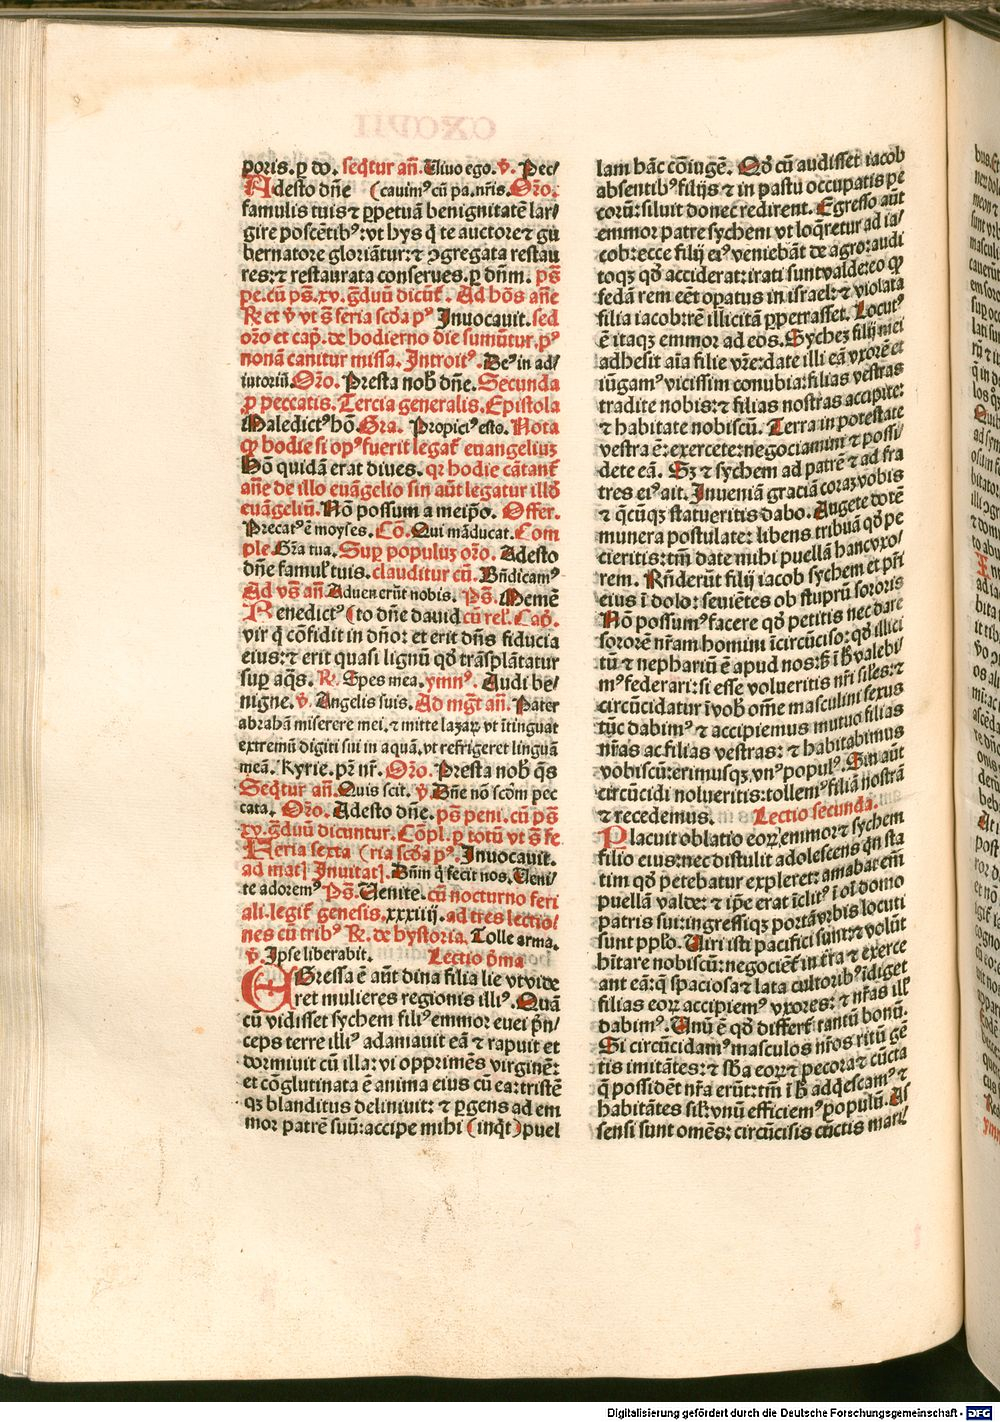 poris. ꝑ do. seq̃tur añ. Uiuo ego. v̄. Pec/
Adesto dñe (cauimꝰ cũ pa. nr̃is. Or̃o.
famulis tuis ⁊ ꝑpetuã benignitatẽ lar/
gire poscẽtibꝰ: vt hys q̃ te auctore ⁊ gu
bernatore gloriãtur: ⁊ ꝯgregata restau
res: ⁊ restaurata conserues. ꝑ dñm. ps̃
pe. cũ ps̃. xv. g̃duũ dicũt̃. Ad hõs añe
R̃. et v̄ vt s̃ feria scd̃a pꝰ Inuocauit. sed
or̃o et cap̃. de hodierno die sumũtur. pꝰ
nonã canitur missa. Introitꝰ. Deꝰ in ad/
iutoriũ. Or̃o. Presta nob̃ dñe. Secunda
ꝑ peccatis. Tercia generalis. Epistola
Maledictꝰ hõ. Gra. Propiciꝰ esto. Nota
ꝙ hodie si opꝰ fuerit legat̃ euangeliuꝫ
Hõ quidã erat diues. qꝛ hodie cãtant̃
añe de illo euãgelio sin aũt legatur illd̃
euãgeliũ. Nõ possum a meip̃o. Offer.
Precatꝰ ẽ moyses. Cõ. Qui mãducat. Com
ple Gr̃a tua. Suꝑ populuꝫ or̃o. Adesto
dñe famul̃ tuis. clauditur cũ. Bñdicamꝰ
Ad vs̃ añ. Aduenerũt nobis. Ps̃. Memẽ
Benedictꝰ (to dñe dauid cũ rel. Cap̃.
vir q̃ cõfidit in dño: et erit dñs fiducia
eius: ⁊ erit quasi lignũ qd̃ trãsplãtatur
suꝑ aq̃s. R̃. Spes mea. ymnꝰ. Audi be/
nigne. v̄. Angelis suis. Ad mg̃t añ. Pater
abrahã miserere mei. ⁊ mitte lazaꝝ vt ĩtinguat
extremũ digiti sui in aquã. vt refrigeret linguã
meã. Kyrie. pr̃ nr̃. Or̃o. Presta nob̃ q̃s
Seq̃tur añ. Quis scit. v̄ Dñe nõ scd̃m pec
cata. Or̃o. Adesto dñe. ps̃ peni. cũ ps̃
xv. g̃duũ dicuntur. Cõpl. ꝑ totũ vt s̃ fe
Feria sexta (ria scd̃a pꝰ. Inuocauit.
ad mat̃ Inuitat̃. Dñm q̃ fecit nos. Ueni/
te adoremꝰ Ps̃. Uenite. cũ nocturno feri
ali. legit̃ genesis. xxxiiij. ad tres lectio/
nes cũ tribꝰ R̃. de hystoria. Tolle arma.
v̄. Ipse liberabit. Lectio p̃ma
EGressa ẽ aũt dina filia lie vt vide
ret mulieres regionis illiꝰ. Quã
cũ vidisset sychem filiꝰ emmor euei p̃n/
ceps terre illiꝰ adamauit eã ⁊ rapuit et
dormiuit cũ illa: vi opprimẽs virginẽ:
et cõglutinata ẽ anima eius cũ ea: tristẽ
qꝫ blanditus deliniuit: ⁊ ꝑgens ad em
mor patrẽ suũ: accipe mihi (inq̃t) puel
lam hãc cõiugẽ. Qd̃ cũ audisset iacob
absentibꝰ filijs ⁊ in pastu occupatis pe
corũ: siluit donec redirent. Egresso aũt
emmor patre sychem vt loq̃retur ad ia/
cob: ecce filij eiꝰ veniebãt de agro: audi
toqꝫ qd̃ acciderat: irati sunt valde: eo ꝙ
fedã rem eẽt opatus in israel: ⁊ violata
filia iacob: rẽ illicitã ꝑpetrasset. Locutꝰ
ẽ itaqꝫ emmor ad eos. Sycheꝫ filij mei
adhesit aĩa filie vr̃e: date illi eã vxorẽ et
iũgamꝰ vicissim conubia: filias vestras
tradite nobis: ⁊ filias nostras accipite:
⁊ habitate nobiscũ. Terra in potestate
vestra ẽ: exercete: negociamini ⁊ possi/
dete eã. Sꝫ ⁊ sychem ad patrẽ ⁊ ad fra
tres eiꝰ ait. Inueniã graciã coraꝫ vobis
⁊ q̃cũqꝫ statueritis dabo. Augete dotẽ
munera postulate: libens tribuã qd̃ pe
cieritis: tm̃ date mihi puellã hanc vxo/
rem. Rñderũt filij iacob sychem et pr̃i
eius ĩ dolo: seuiẽtes ob stuprũ sororis
Nõ possumꝰ facere qd̃ petitis nec dare
sororẽ nr̃am homini ĩcircũciso: qd̃ illici
tũ ⁊ nephariũ ẽ apud nos: s̃ ĩ h̃ valebi
mꝰ federari: si esse volueritis nr̃i siles: ⁊
circũcidatur ĩ vob̃ om̃e masculini sexus
tũc dabimꝰ ⁊ accipiemus mutuo filias
nr̃as ac filias vestras: ⁊ habitabimus
vobiscũ: erimusqꝫ vnꝰ populꝰ. Sin aũt
circũcidi nolueritis: tollemꝰ filiã nostrã
⁊ recedemus. Lectio secunda.
Placuit oblatio eoꝝ, emmor ⁊ sychem
filio eius: nec distulit adolescens q̃n sta
tim qd̃ petebatur expleret: amabat em̃
puellã valde: ⁊ ip̃e erat ĩclitꝰ ĩ oĩ domo
patris sui: ingressiqꝫ portã vrbis locuti
sunt pplo. Uiri isti pacifici sunt: ⁊ volũt
hĩtare nobiscũ: negociẽt̃ in tr̃a ⁊ exerce
ant eã: q̃ spaciosa ⁊ lata cultoribꝰ ĩdiget
filias eoꝝ accipiemꝰ vxores: ⁊ nr̃as ill̃
dabimꝰ. Unũ ẽ qd̃ differt̃ tantũ bonũ.
Si circũcidamꝰ masculos nr̃os ritũ gẽ
tis imitãtes: ⁊ sb̃a eoꝝ ⁊ pecora ⁊ cũcta
q̃ possidẽt nr̃a erũt: tm̃ ĩ h̃ adq̃escamꝰ ⁊
habitãtes sil̃: vnũ efficiemꝰ populũ. As
sensi sunt om̃es: circũcisis cũctis mari/
Digitalisierung gefördert durch die Deutsche Forschungsgemeinschaft - DFG